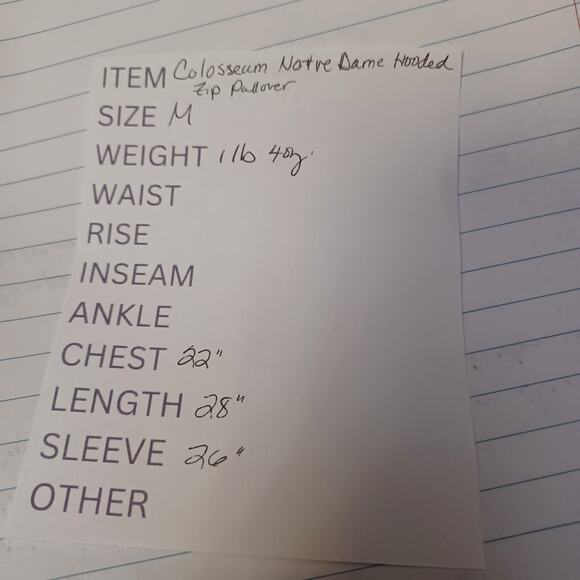 ITEM Colosseum Notre Dame Hooded
Zip Pullover
SIZE M
WEIGHT 1 lb 4oz
WAIST
RISE
INSEAM
ANKLE
CHEST 22"
LENGTH 28"
SLEEVE 26"
OTHER